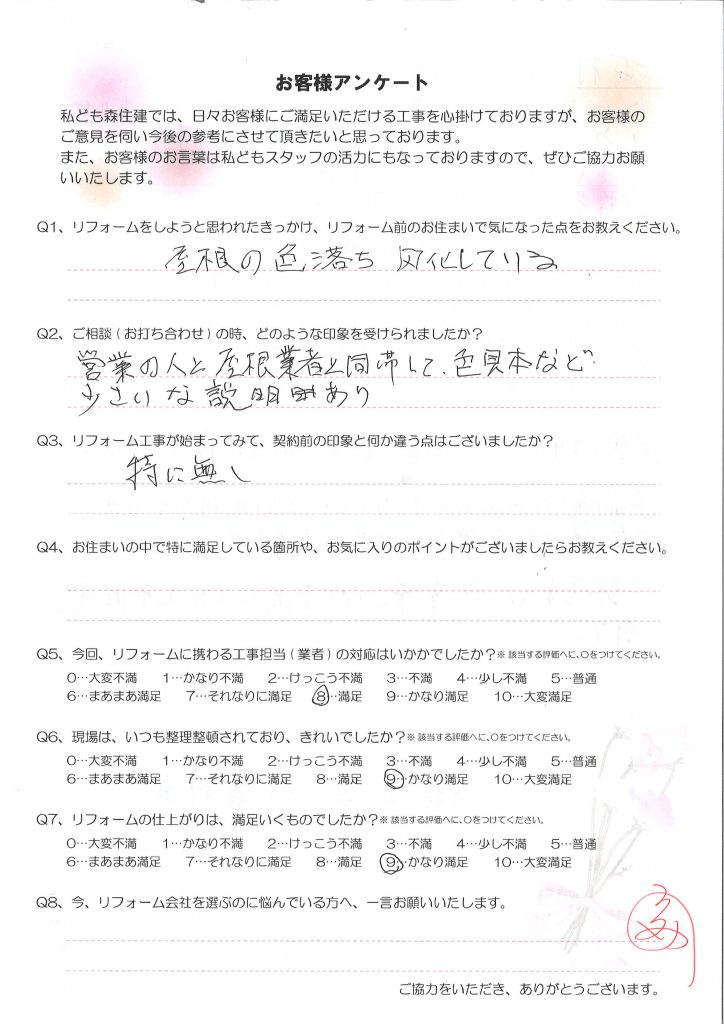 お客様アンケート
私ども森住建では、日々お客様にご満足いただける工事を心掛けておりますが、お客様の
ご意見を伺い今後の参考にさせて頂きたいと思っております。
また、お客様のお言葉は私どもスタッフの活力にもなっておりますので、ぜひご協力お願
いいたします。
Q1、リフォームをしようと思われたきっかけ、リフォーム前のお住まいで気になった点をお教えください。
屋根の色落ち 劣化している
Q2、ご相談(お打ち合わせ)の時、どのような印象を受けられましたか？
営業の人と屋根業者と同帯して、色見本など
な説明あり
Q3、リフォーム工事が始まってみて、契約前の印象と何か違う点はございましたか？
特に無し
Q4、お住まいの中で特に満足している箇所や、お気に入りのポイントがございましたらお教えください。
Q5、今回、リフォームに携わる工事担当(業者)の対応はいかかでしたか？※該当する評価へに、○をつけてください。
0…大変不満 1…かなり不満 2…けっこう不満 3…不満 4…少し不満 5…普通
6…まあまあ満足 7…それなりに満足 8…満足 9…かなり満足 10…大変満足
Q6、現場は、いつも整理整頓されており、きれいでしたか？※該当する評価へに、○をつけてください。
0…大変不満 1…かなり不満 2…けっこう不満 3…不満 4…少し不満 5…普通
6…まあまあ満足 7…それなりに満足 8…満足 9…かなり満足 10…大変満足
Q7、リフォームの仕上がりは、満足いくものでしたか？※該当する評価へに、○をつけてください。
0…大変不満 1…かなり不満 2…けっこう不満 3…不満 4…少し不満 5…普通
6…まあまあ満足 7…それなりに満足 8…満足 9…かなり満足 10…大変満足
Q8、今、リフォーム会社を選ぶのに悩んでいる方へ、一言お願いいたします。
ご協力をいただき、ありがとうございます。